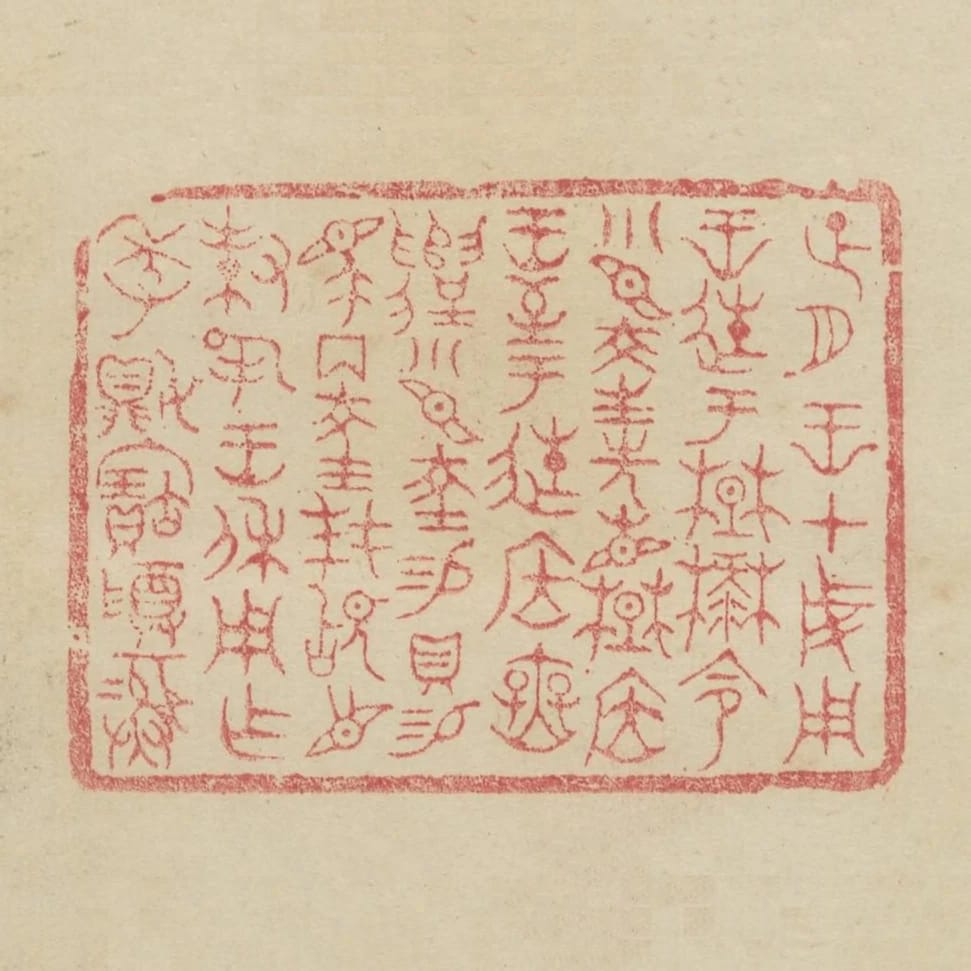 正月王才成周
王徙于楚麓令
小臣夌先省楚居
王至于徙居無
遣小臣夌易貝易
馬丙夌拜稽首
對揚王休用乍
季娟寶尊彝